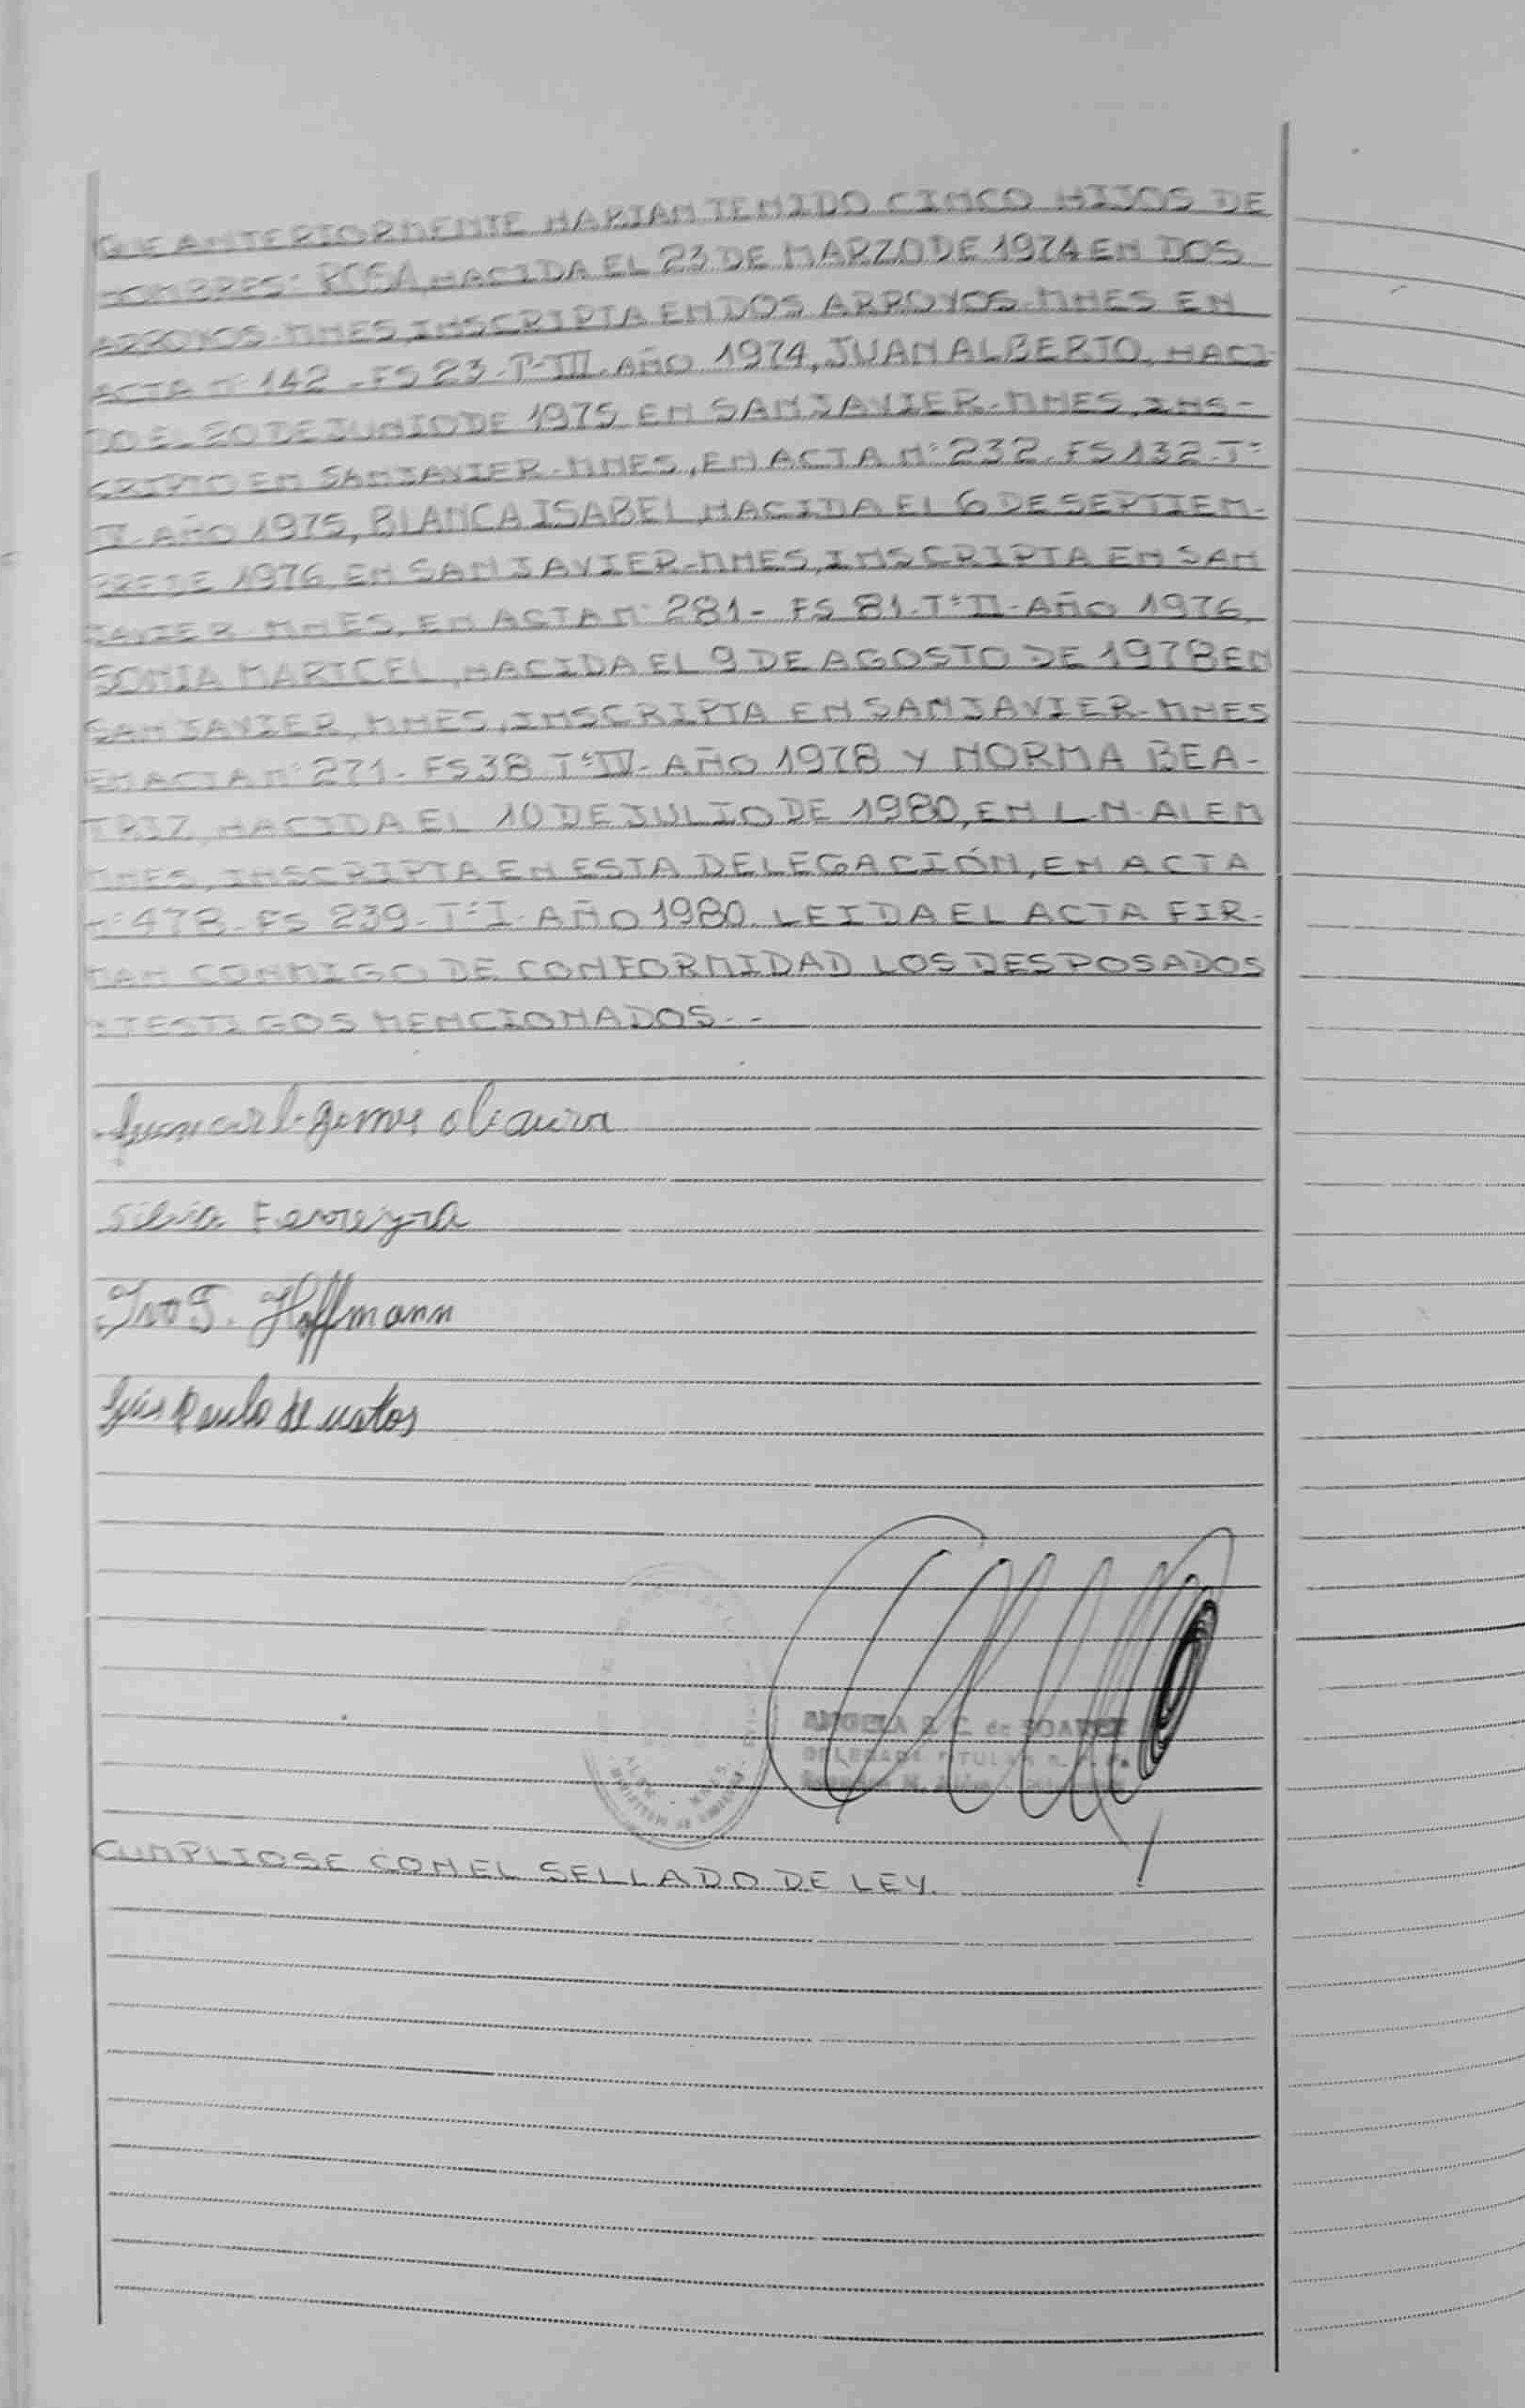 QUE ANTERIORMENTE HABIAN TENIDO CINCO HIJOS DE
NOMBRES: ROSA, NACIDA EL 23 DE MARZO DE 1974 EN DOS
ARROYOS-MNES, INSCRIPTA EN DOS ARROYOS-MNES EN
ACTA Nº 142-FS 23-Tº III-AÑO 1974, JUAN ALBERTO, NACI-
DO EL 20 DE JUNIO DE 1975 EN SAN JAVIER-MNES, INS-
CRIPTO EN SAN JAVIER-MNES, EN ACTA Nº 232-FS 132-Tº
AÑO 1975, BLANCA ISABEL, NACIDA EL 6 DE SEPTIEM-
BRE DE 1976, EN SAN JAVIER-MNES, INSCRIPTA EN SAN
JAVIER-MNES, EN ACTA Nº 281-FS 81-Tº II-AÑO 1976,
SONIA MARICEL, NACIDA EL 9 DE AGOSTO DE 1978 EN
SAN JAVIER, MNES, INSCRIPTA EN SAN JAVIER-MNES
EN ACTA Nº 271-FS 38 Tº IV-AÑO 1978 Y NORMA BEA-
TRIZ, NACIDA EL 10 DE JULIO DE 1980, EN L.N. ALEM
MNES, INSCRIPTA EN ESTA DELEGACIÓN, EN ACTA
Nº 478-FS 239-Tº I-AÑO 1980. LEIDA EL ACTA FIR-
MAN CONMIGO DE CONFORMIDAD LOS DESPOSADOS
Y TESTIGOS MENCIONADOS.--
Silvia Ferreyra
Ivo T. Hoffmann
Luis Paulo de Matos
ANGELA C. de SOAREZ
DELEGADA TITULAR
CUMPLIOSE CON EL SELLADO DE LEY.